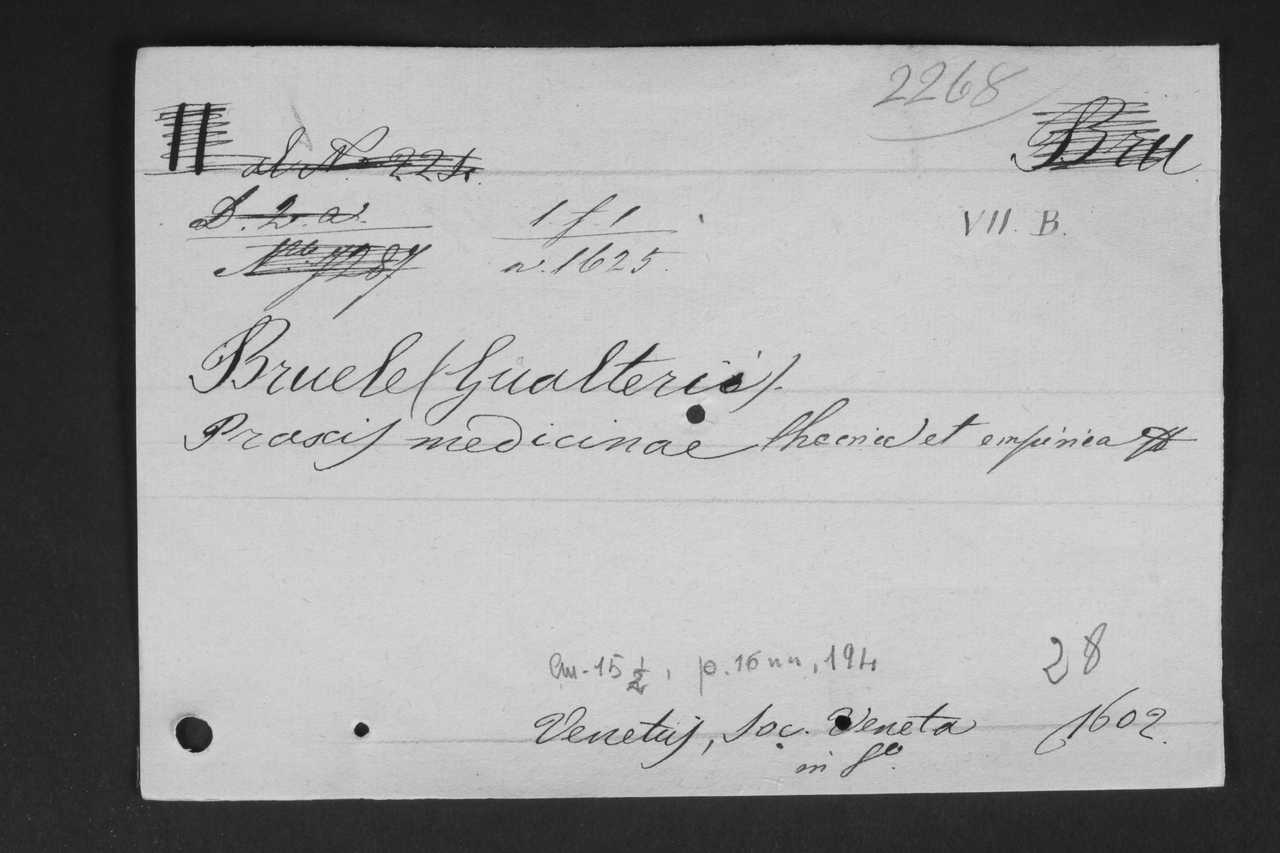 2268
Bru
al No 224.
D. 2. a.
1 f. 1
VII. B.
Nro 7287
a. 1625.
Bruele (Gualterii).
Praxis medicinae et empirica
cm. 15 1/2, p. 16 nn, 194
28
Venetiis, Soc. Veneta 1602.
in 8º.